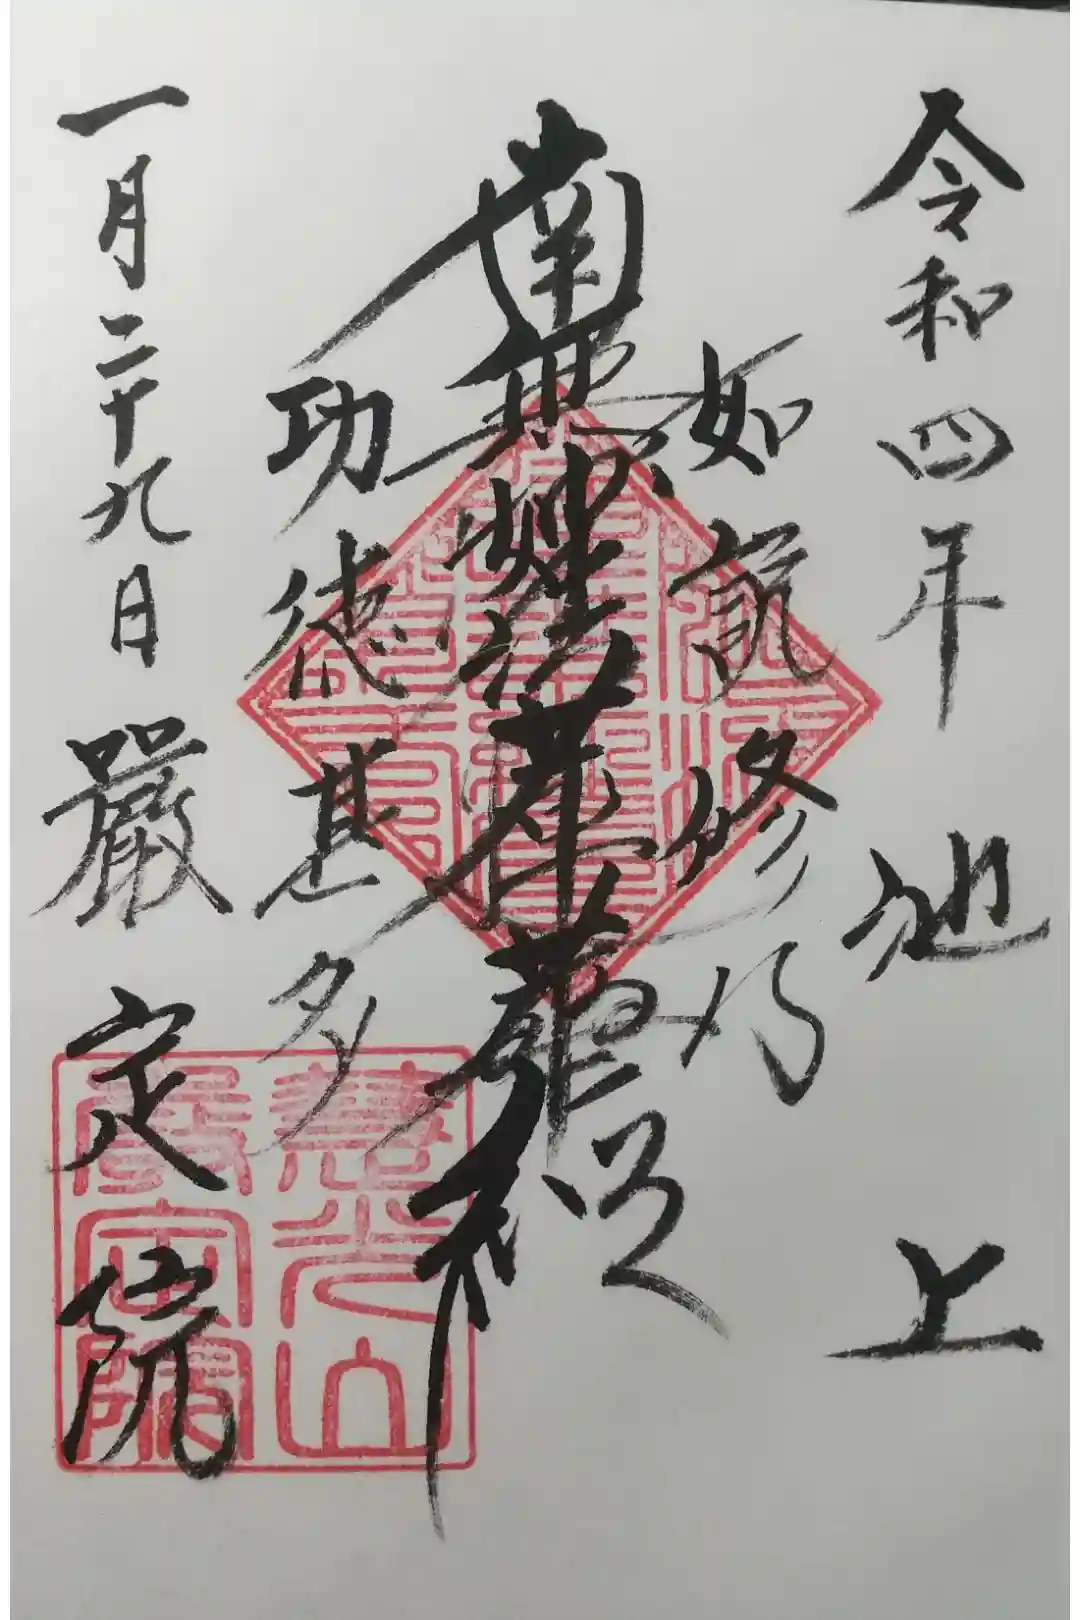 令和四年 池上
如説修行
南無妙法蓮華経
功徳甚多
一月二十九日 嚴定院
光山
嚴定院